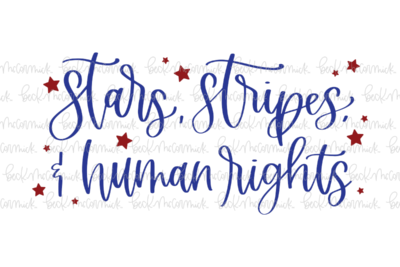 stars, stripes,
& human rights